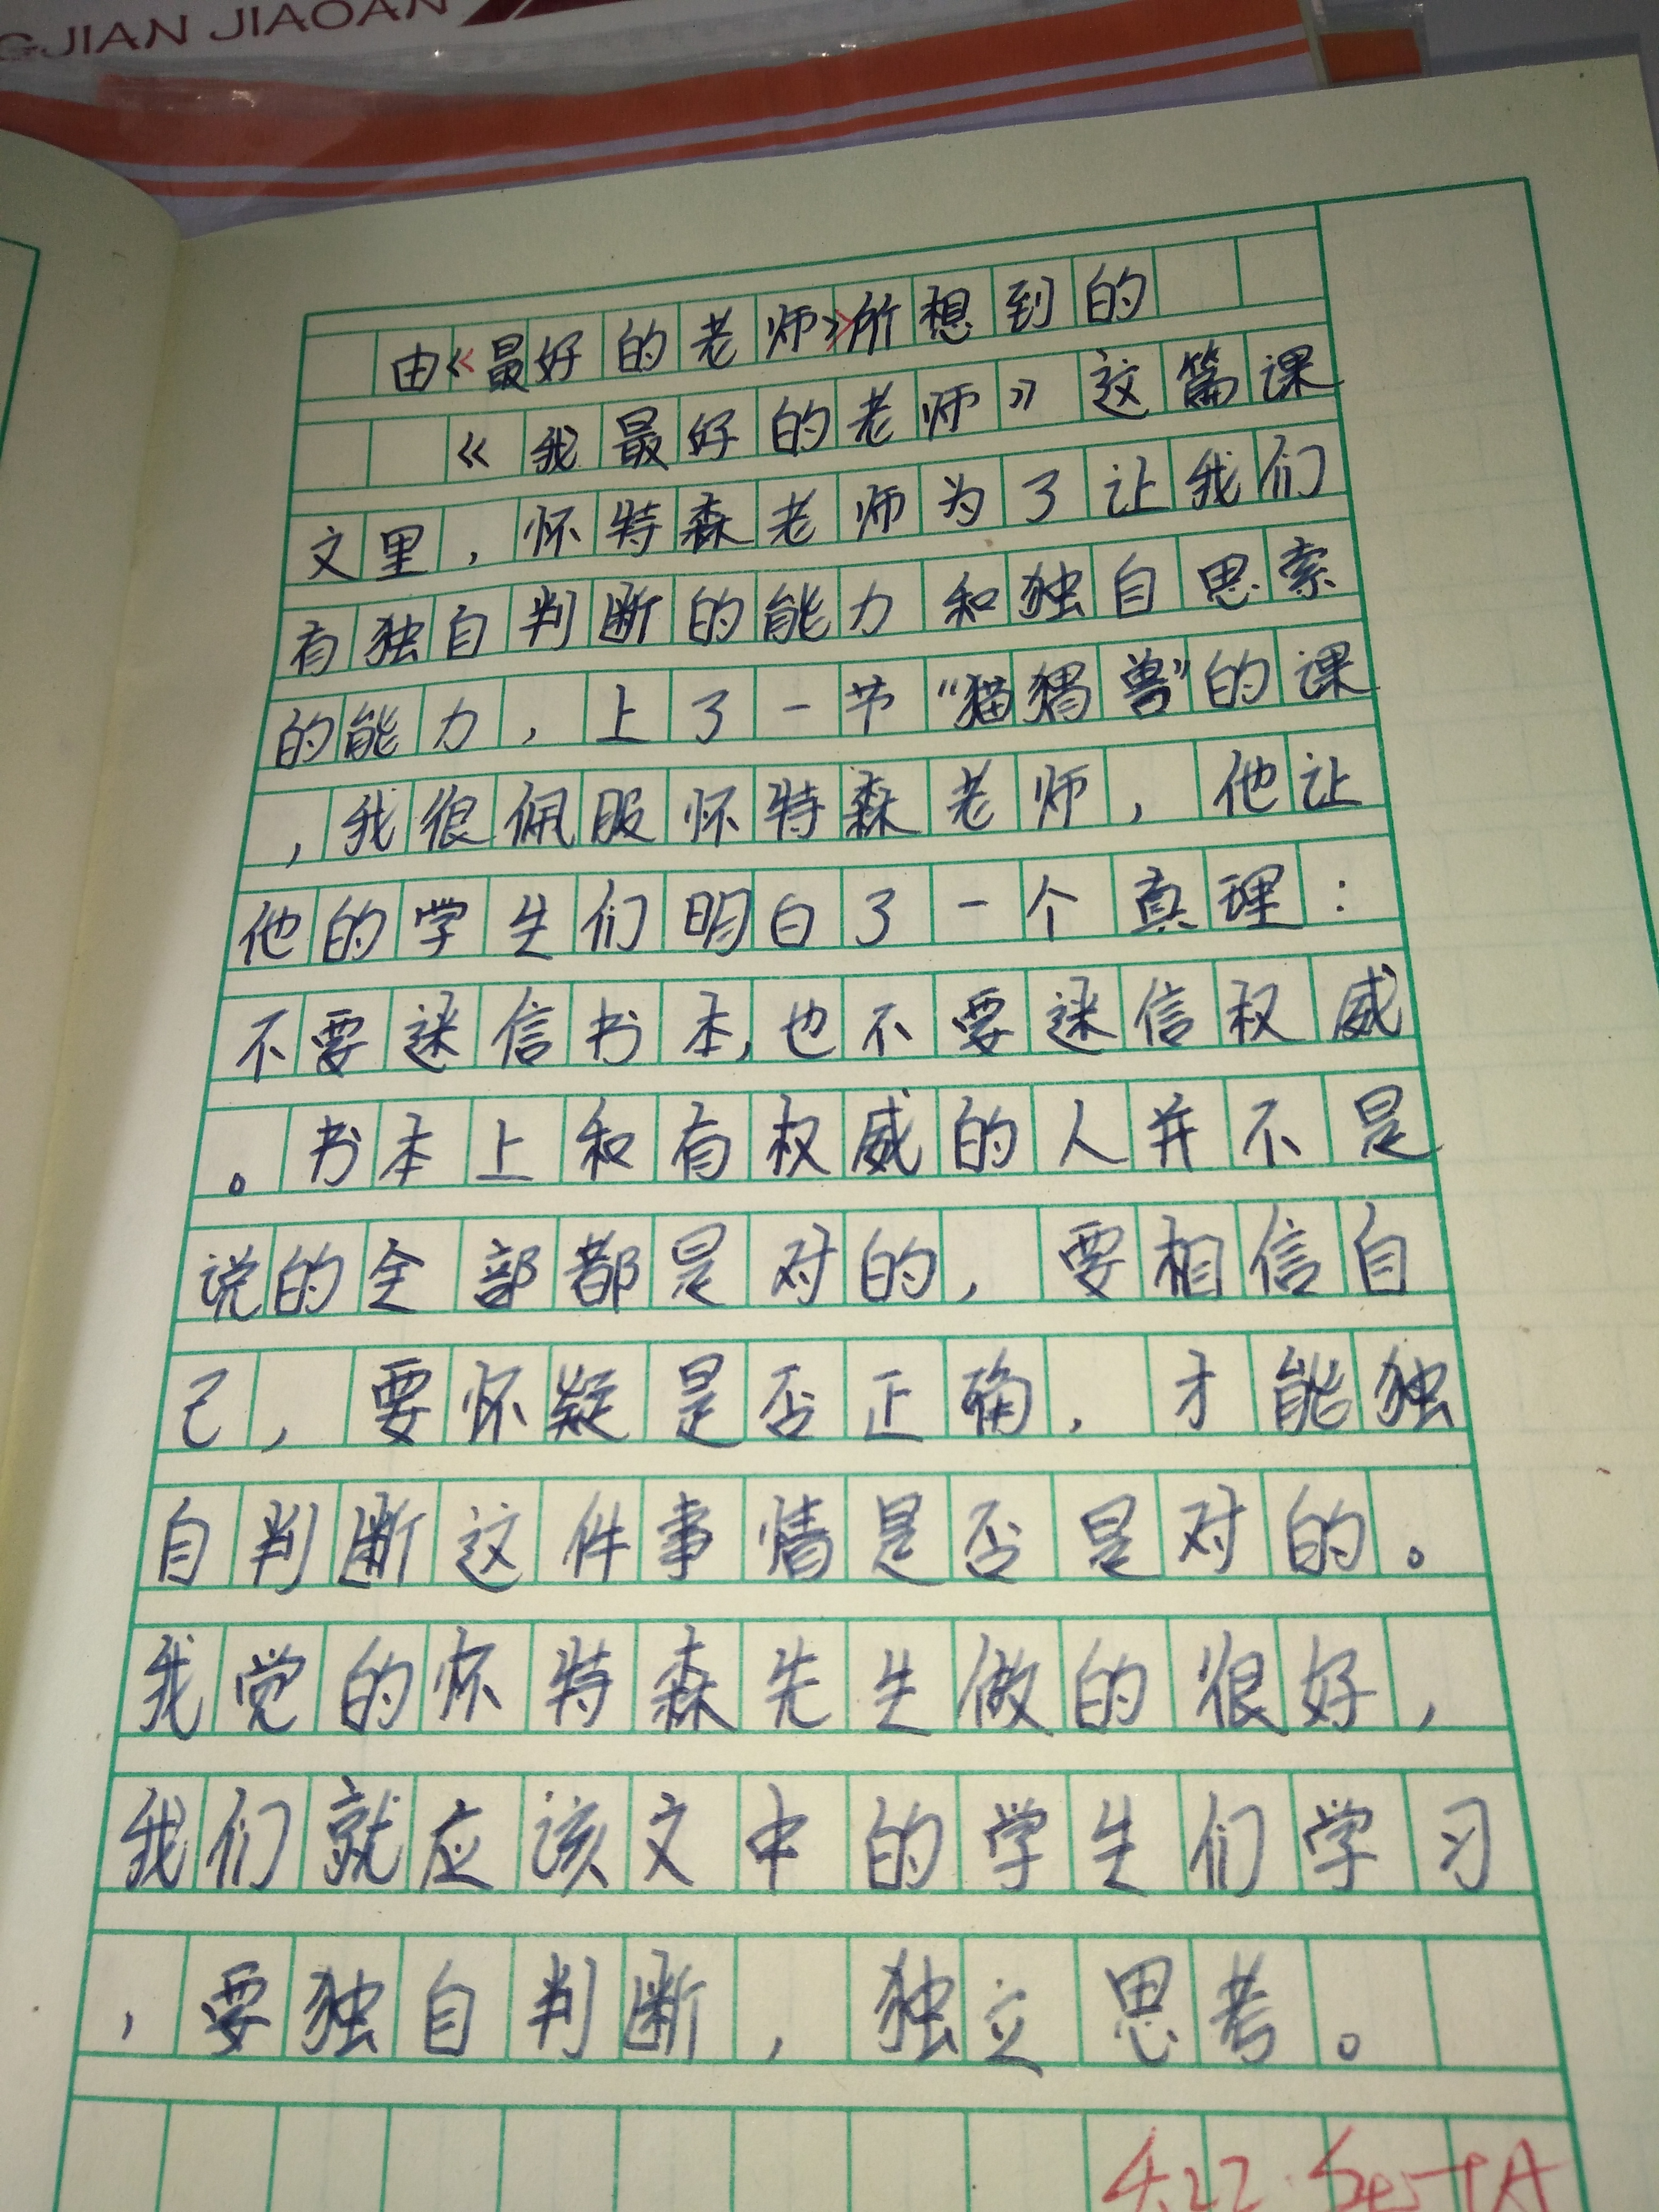 GJIAN JIAOAN
由《最好的老师》所想到的
《我最好的老师》这篇课
文里，怀特森老师为了让我们
有独自判断的能力和独自思索
的能力，上了一节“猫猬兽”的课
，我很佩服怀特森老师，他让
他的学生们明白了一个真理：
不要迷信书本，也不要迷信权威
。书本上和有权威的人并不是
说的全部都是对的，要相信自
己，要怀疑是否正确，才能独
自判断这件事情是否是对的。
我觉的怀特森先生做的很好，
我们就应该文中的学生们学习
，要独自判断，独立思考。
4.22